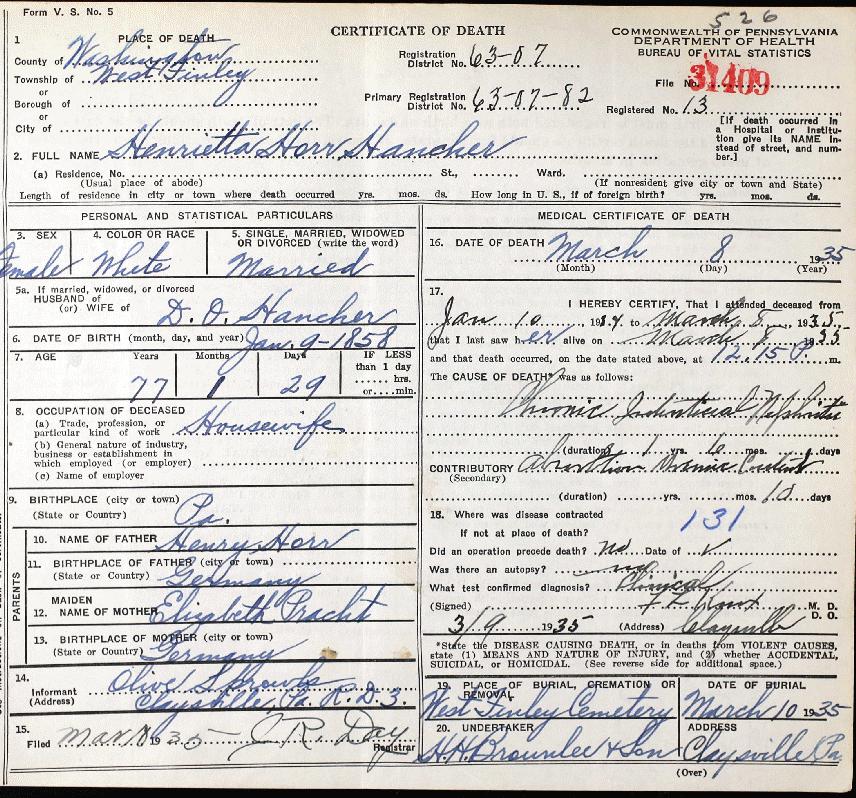 Form V. S. No. 5
526
CERTIFICATE OF DEATH
COMMONWEALTH OF PENNSYLVANIA
DEPARTMENT OF HEALTH
BUREAU OF VITAL STATISTICS
1 PLACE OF DEATH
County of Washington
Township of West Finley
or
Borough of
or
City of
Registration District No. 63-07
Primary Registration District No. 63-07-82
File No. 31409
Registered No. 13
[If death occurred in a Hospital or Institution give its NAME instead of street, and number.]
2. FULL NAME Henrietta Horr Hancher
(a) Residence, No. St., Ward.
(Usual place of abode) (If nonresident give city or town and State)
Length of residence in city or town where death occurred yrs. mos. ds. How long in U. S., if of foreign birth? yrs. mos. ds.
PERSONAL AND STATISTICAL PARTICULARS
3. SEX 4. COLOR OR RACE 5. SINGLE, MARRIED, WIDOWED OR DIVORCED (write the word)
Female White Married
5a. If married, widowed, or divorced
HUSBAND of
(or) WIFE of D. O. Hancher
6. DATE OF BIRTH (month, day, and year) Jan. 9-1858
7. AGE Years Months Days IF LESS than 1 day
77 1 29 hrs. or min.
8. OCCUPATION OF DECEASED
(a) Trade, profession, or particular kind of work Housewife
(b) General nature of industry, business or establishment in which employed (or employer)
(c) Name of employer
9. BIRTHPLACE (city or town)
(State or Country) Pa.
PARENTS
10. NAME OF FATHER Henry Horr
11. BIRTHPLACE OF FATHER (city or town)
(State or Country) Germany
12. MAIDEN NAME OF MOTHER Elizabeth Pracht
13. BIRTHPLACE OF MOTHER (city or town)
(State or Country) Germany
14. Informant Olive Sprowls
(Address) Claysville, Pa. R.D.3.
15. Filed Mar 1935 J R Day
Registrar
MEDICAL CERTIFICATE OF DEATH
16. DATE OF DEATH March 8 1935
(Month) (Day) (Year)
17. I HEREBY CERTIFY, That I attended deceased from
Jan 10 1934 to March 8, 1935
that I last saw her alive on March 8, 1935
and that death occurred, on the date stated above, at 12.15 P. m.
The CAUSE OF DEATH* was as follows:
Chronic Interstitial Nephritis
(duration) 1 yrs. 6 mos. days
CONTRIBUTORY
(Secondary)
(duration) yrs. mos. 10 days
18. Where was disease contracted
If not at place of death? 131
Did an operation precede death? no Date of
Was there an autopsy? no
What test confirmed diagnosis? Clinical
(Signed) M. D.
D. O.
3/9 1935 (Address) Claysville
*State the DISEASE CAUSING DEATH, or in deaths from VIOLENT CAUSES, state (1) MEANS AND NATURE OF INJURY, and (2) whether ACCIDENTAL, SUICIDAL, or HOMICIDAL. (See reverse side for additional space.)
19. PLACE OF BURIAL, CREMATION OR REMOVAL DATE OF BURIAL
West Finley Cemetery March 10 1935
20. UNDERTAKER ADDRESS
H.H. Brownlee & Son Claysville Pa.
(Over)